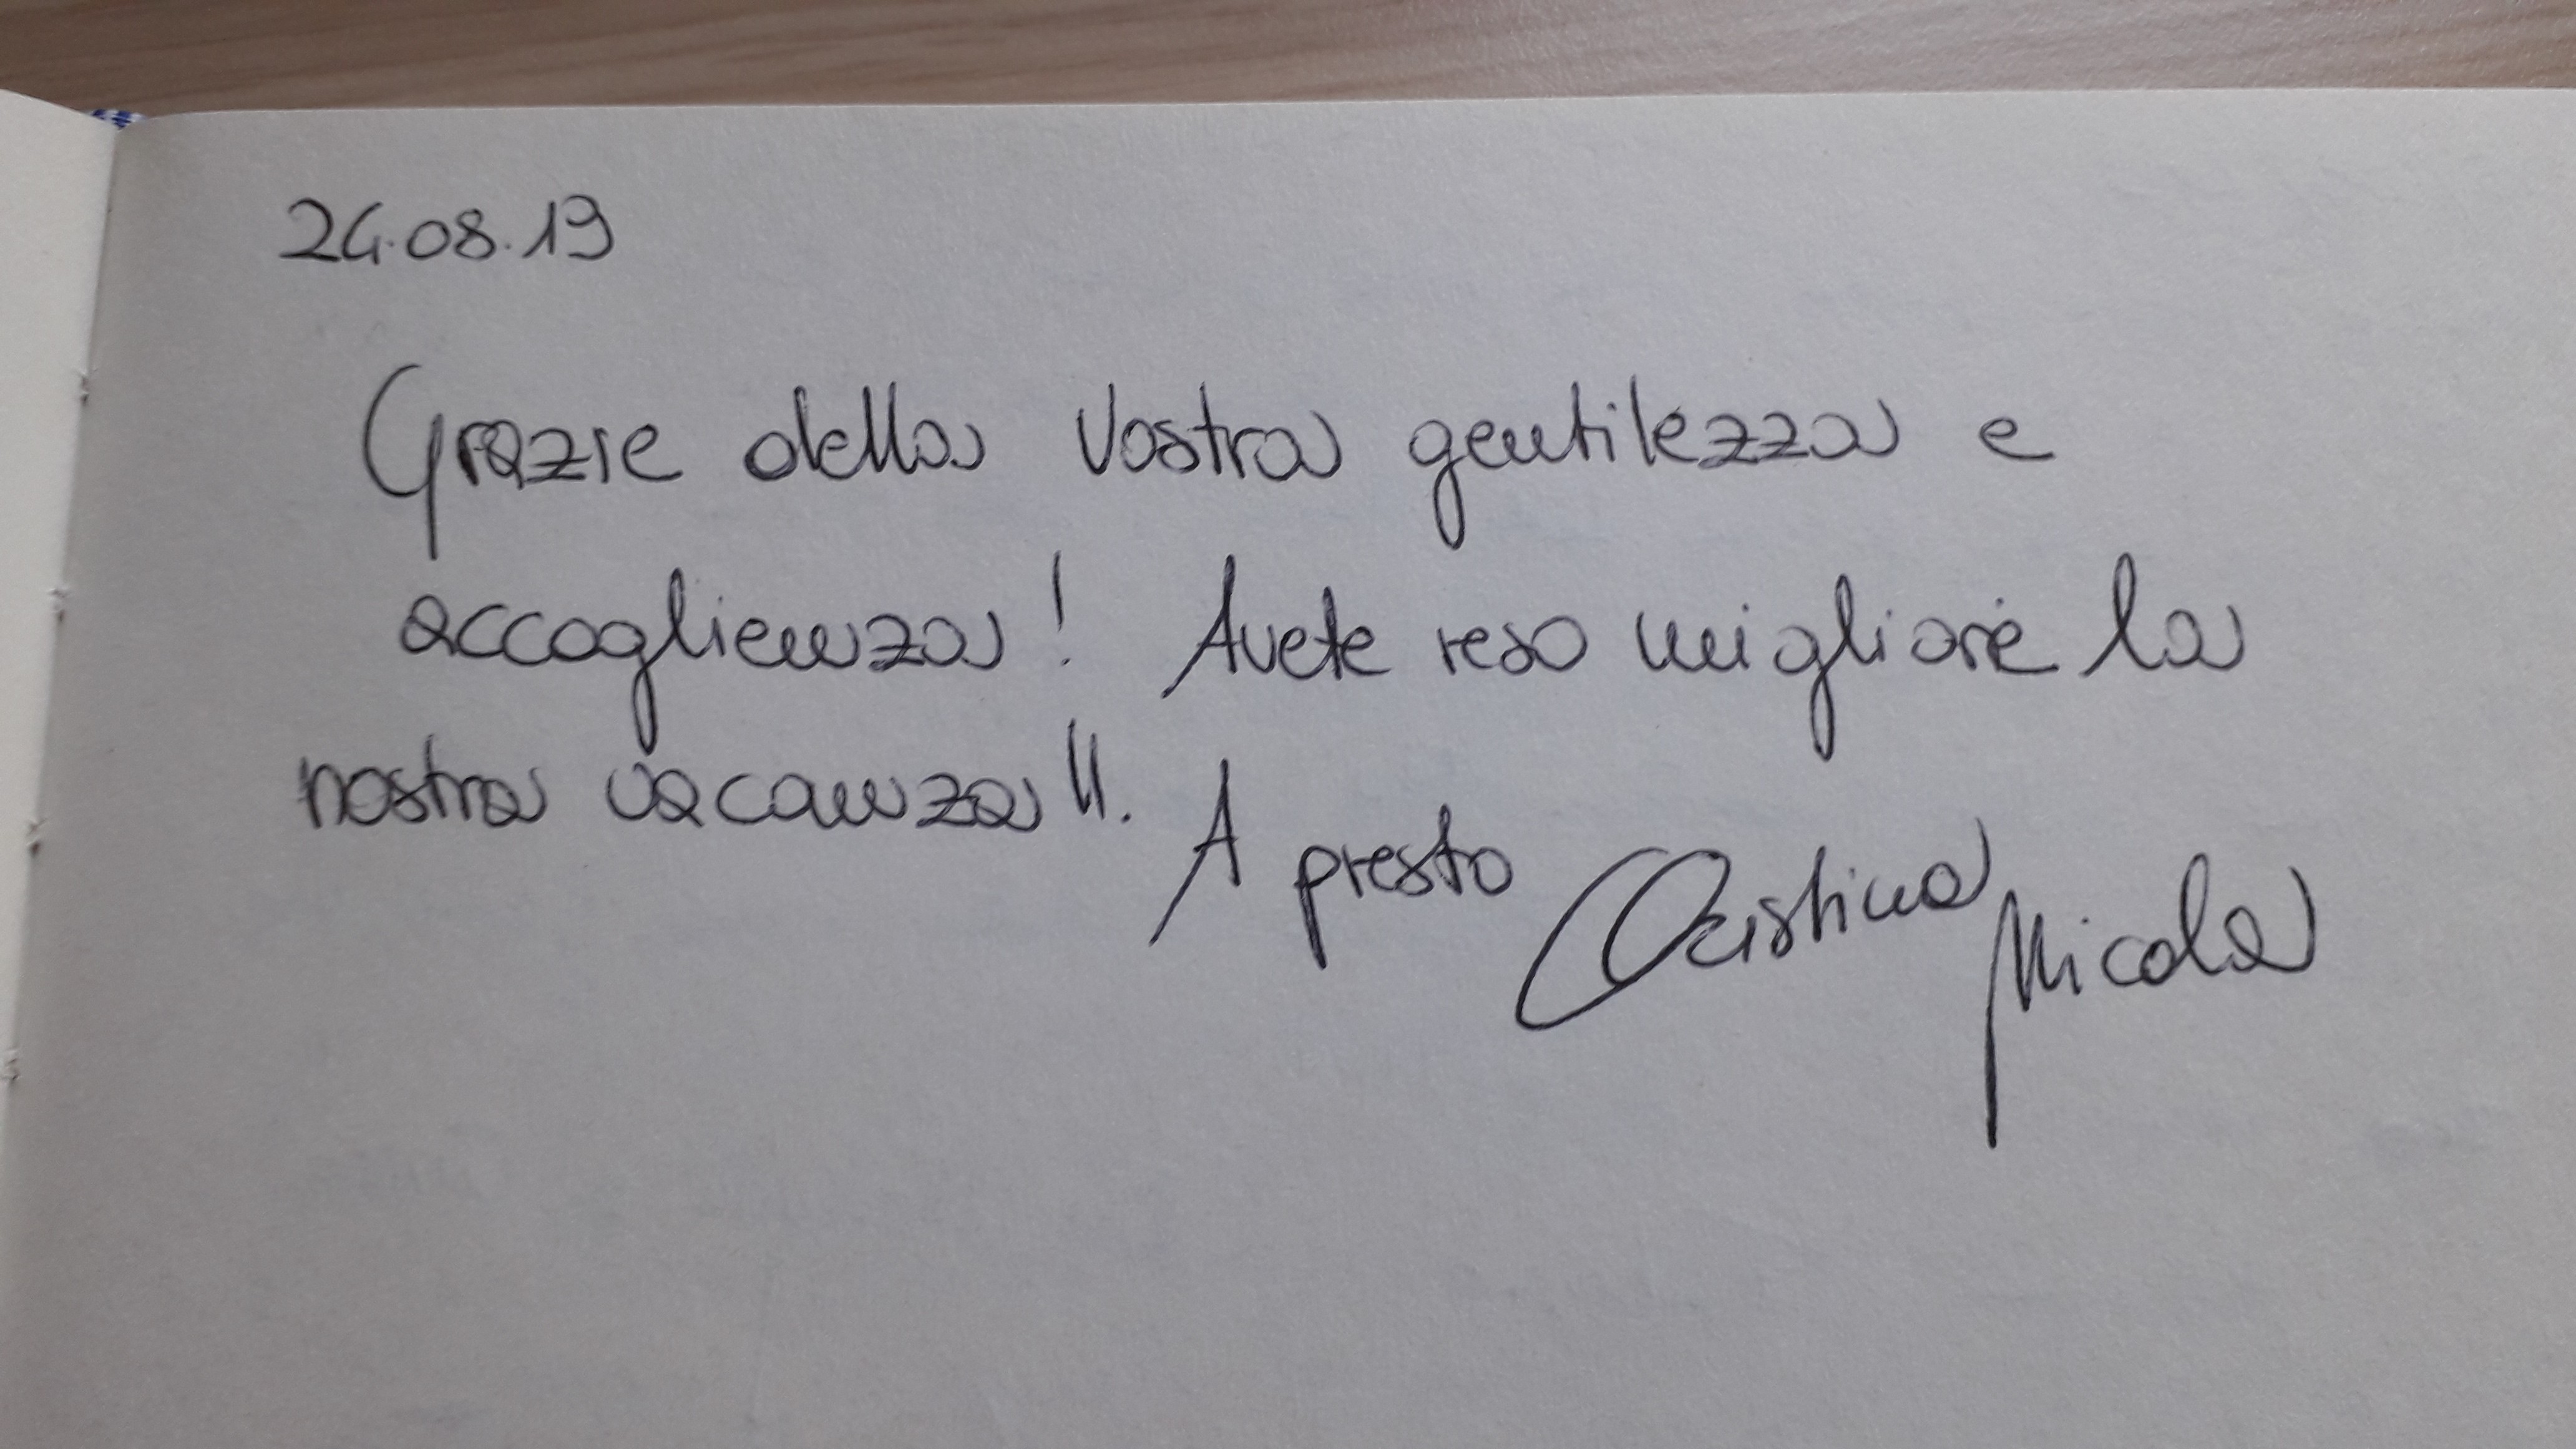 24.08.19
Grazie della Vostra gentilezza e
accoglienza! Avete reso migliore la
nostra vacanza!!.
A presto Cristina
Nicola